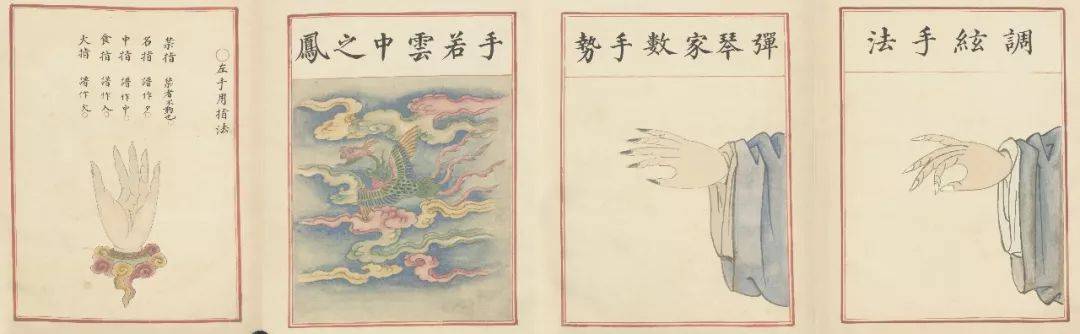 調絃手法
彈琴家數手勢
手若雲中之鳳
○左手用指法
禁指 禁者不動也
名指 譜作夕。
中指 譜作中。
食指 譜作人。
大指 譜作大。